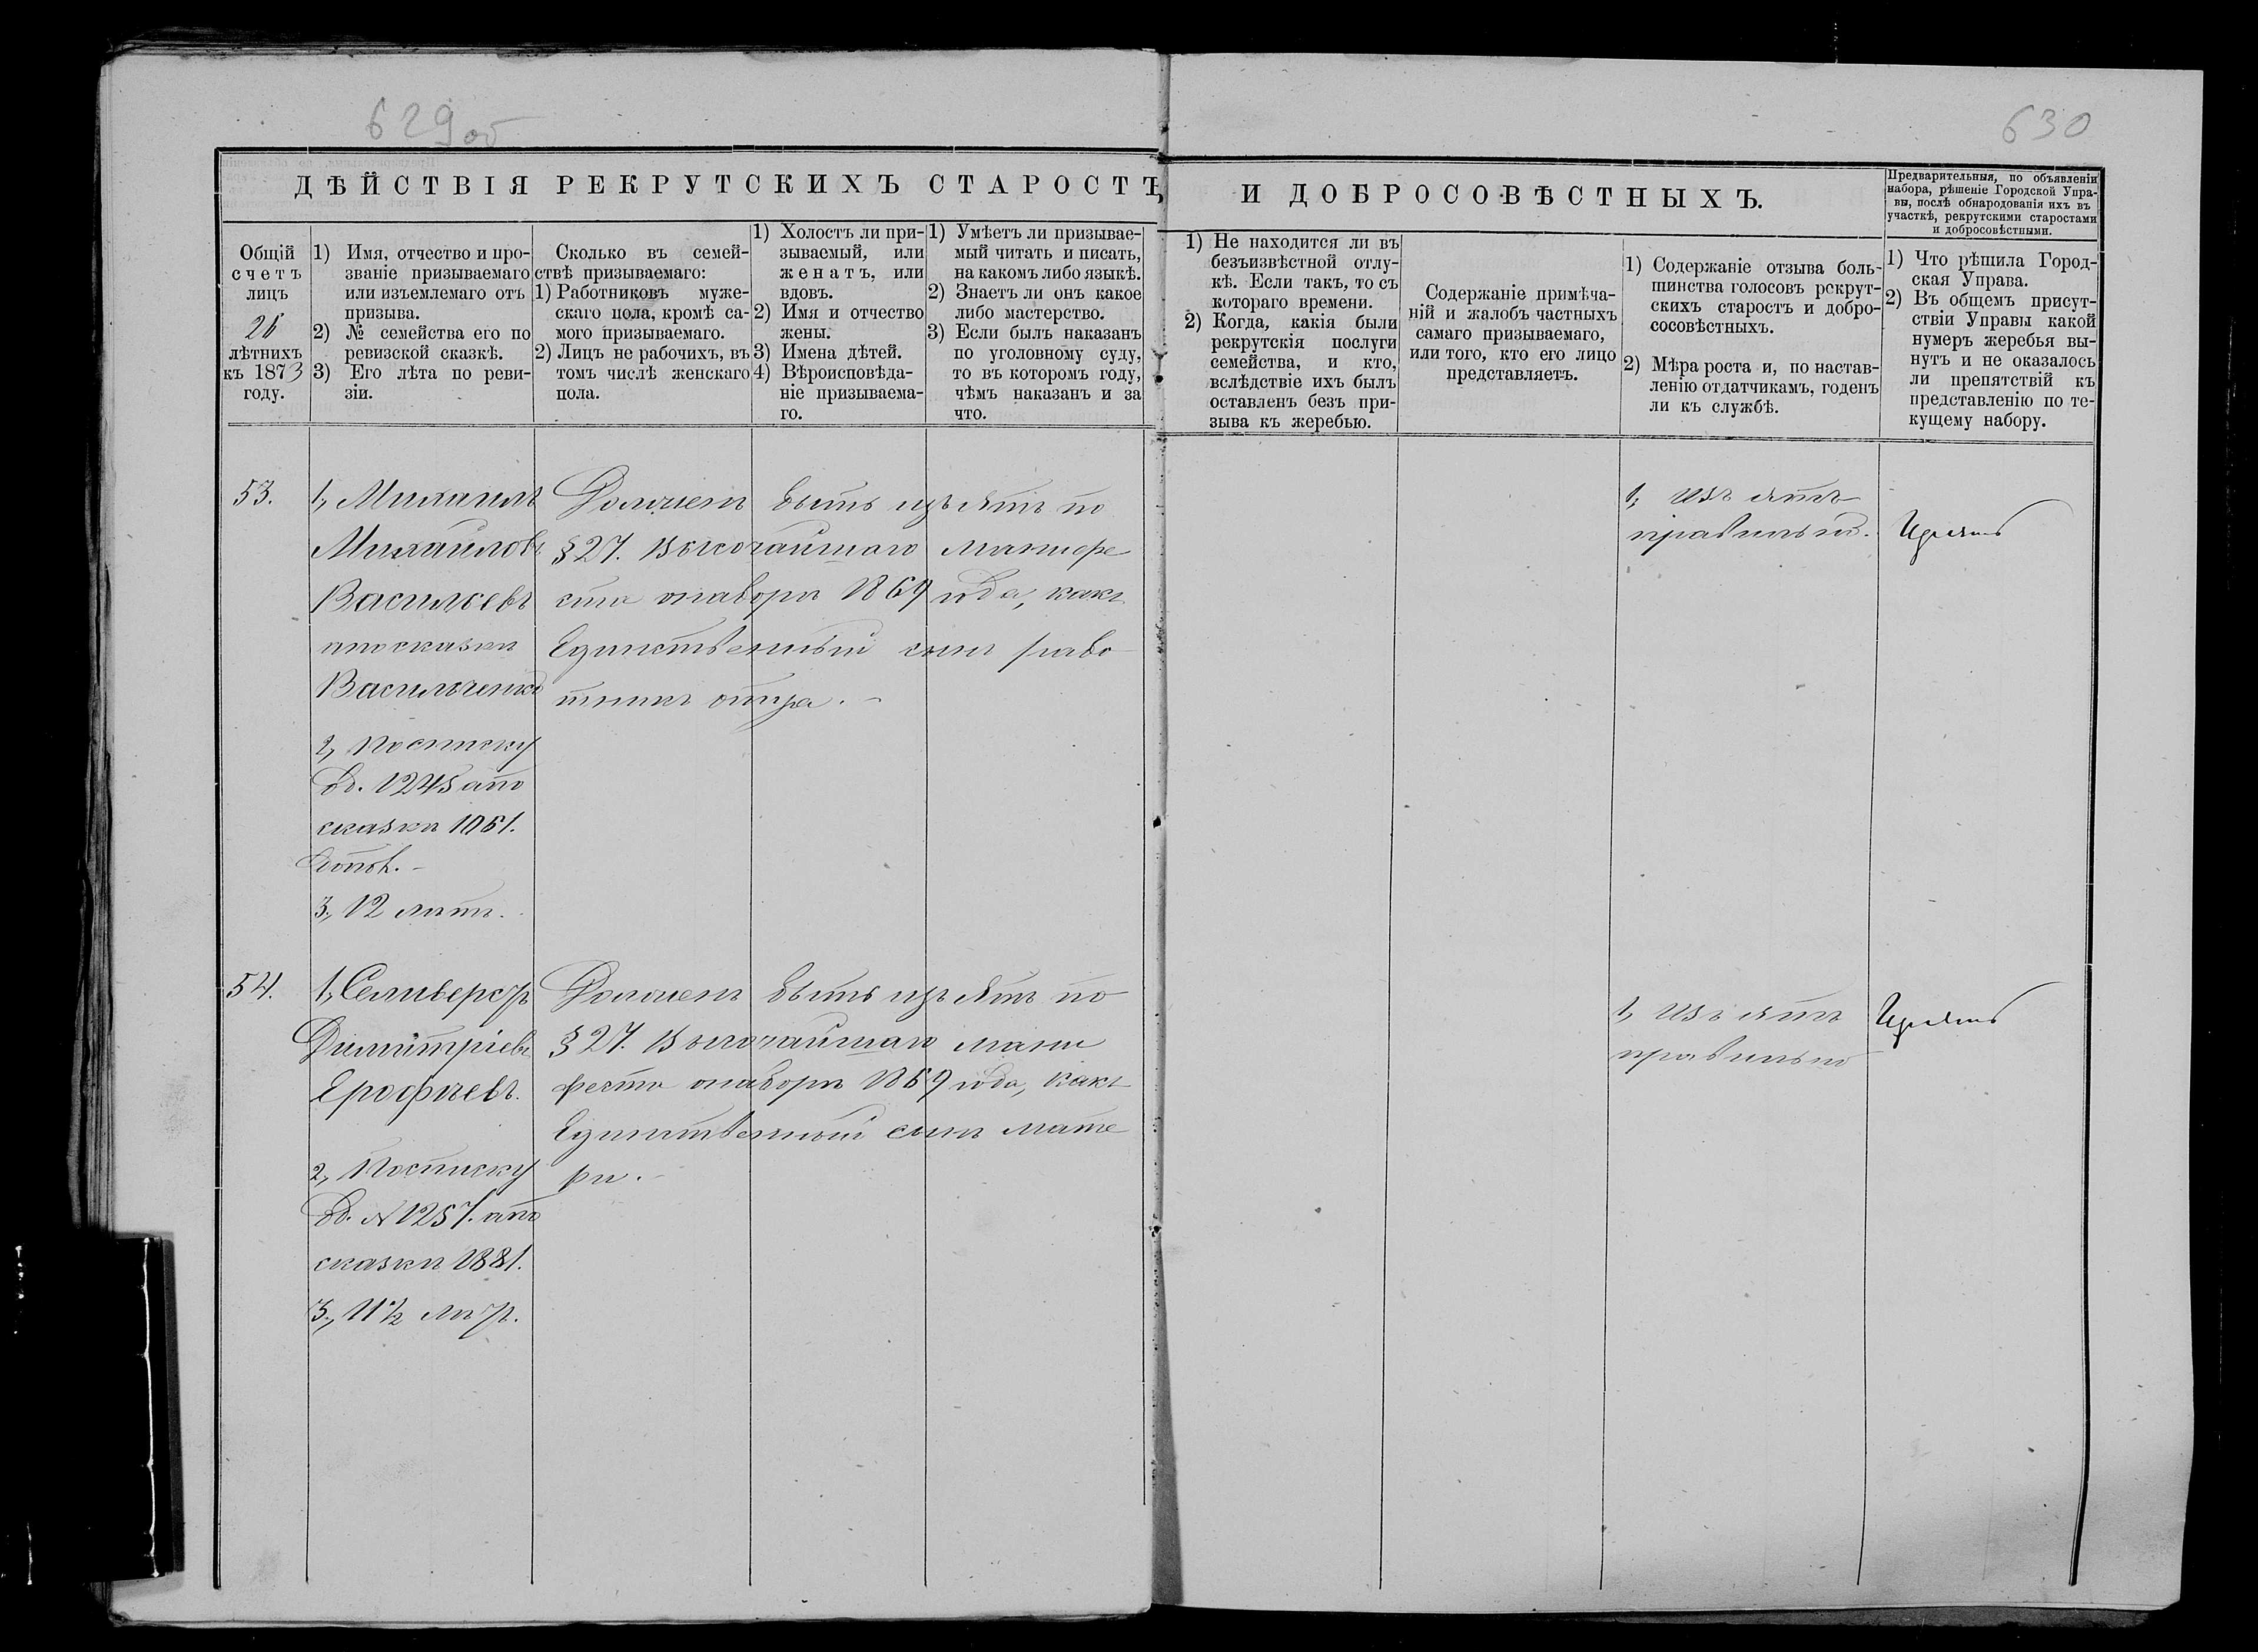 629об
630
ДѢЙСТВІЯ РЕКРУТСКИХЪ СТАРОСТЪ И ДОБРОСОВѢСТНЫХЪ.
Предварительныя, по объявленіи
набора, рѣшеніе Городской Упра-
вы, послѣ обнародованія ихъ въ
участкѣ, рекрутскими старостами
и добросовѣстными.
Общій
счетъ
лицъ
26
лѣтнихъ
къ 1873
году.
1) Имя, отчество и про-
званіе призываемаго
или изъемлемаго отъ
призыва.
2) № семейства его по
ревизской сказкѣ.
3) Его лѣта по реви-
зіи.
Сколько въ семей-
ствѣ призываемаго:
1) Работниковъ муже-
скаго пола, кромѣ са-
мого призываемаго.
2) Лицъ не рабочихъ, въ
томъ числѣ женскаго
пола.
1) Холостъ ли при-
зываемый, или
женатъ, или
вдовъ.
2) Имя и отчество
жены.
3) Имена дѣтей.
4) Вѣроисповѣда-
ніе призываема-
го.
1) Умѣетъ ли призывае-
мый читать и писать,
на какомъ либо языкѣ.
2) Знаетъ ли онъ какое
либо мастерство.
3) Если былъ наказанъ
по уголовному суду,
то въ которомъ году,
чѣмъ наказанъ и за
что.
1) Не находится ли въ
безъизвѣстной отлу-
кѣ. Если такъ, то съ
котораго времени.
2) Когда, какія были
рекрутскія послуги
семейства, и кто,
вслѣдствіе ихъ былъ
оставленъ безъ при-
зыва къ жеребью.
Содержаніе примѣча-
ній и жалобъ частныхъ
самаго призываемаго,
или того, кто его лицо
представляетъ.
1) Содержаніе отзыва боль-
шинства голосовъ рекрут-
скихъ старостъ и добро-
сосовѣстныхъ.
2) Мѣра роста и, по настав-
ленію отдатчикамъ, годенъ
ли къ службѣ.
1) Что рѣшила Город-
ская Управа.
2) Въ общемъ присут-
ствіи Управы какой
нумеръ жеребья вы-
нутъ и не оказалось
ли препятствій къ
представленію по те-
кущему набору.
53.
1, Михаилъ
Михайловъ
Васильевъ
апо сказкѣ
Васильченко
2, По списку
Дв. 1245 апо
сказкѣ 1061.
3, 12 лѣтъ.
Долженъ быть изъятъ по
§ 27. Высочайшаго Манифе
ста о наборѣ 1869 года, какъ
Единственный сынъ рабо
тникъ отца.
1, Изъятъ
правильно.
Изъятъ
54.
1, Селиверстъ
Димитріевъ
Ерофѣевъ.
2, По списку
Дв. N 1257. апо
сказкѣ 1881.
3, 11½ лѣтъ.
Долженъ быть изъятъ по
§ 27. Высочайшаго мани
феста о наборѣ 1869 года, какъ
Единственный сынъ мате
ри.
1, Изъятъ
правильно
Изъятъ